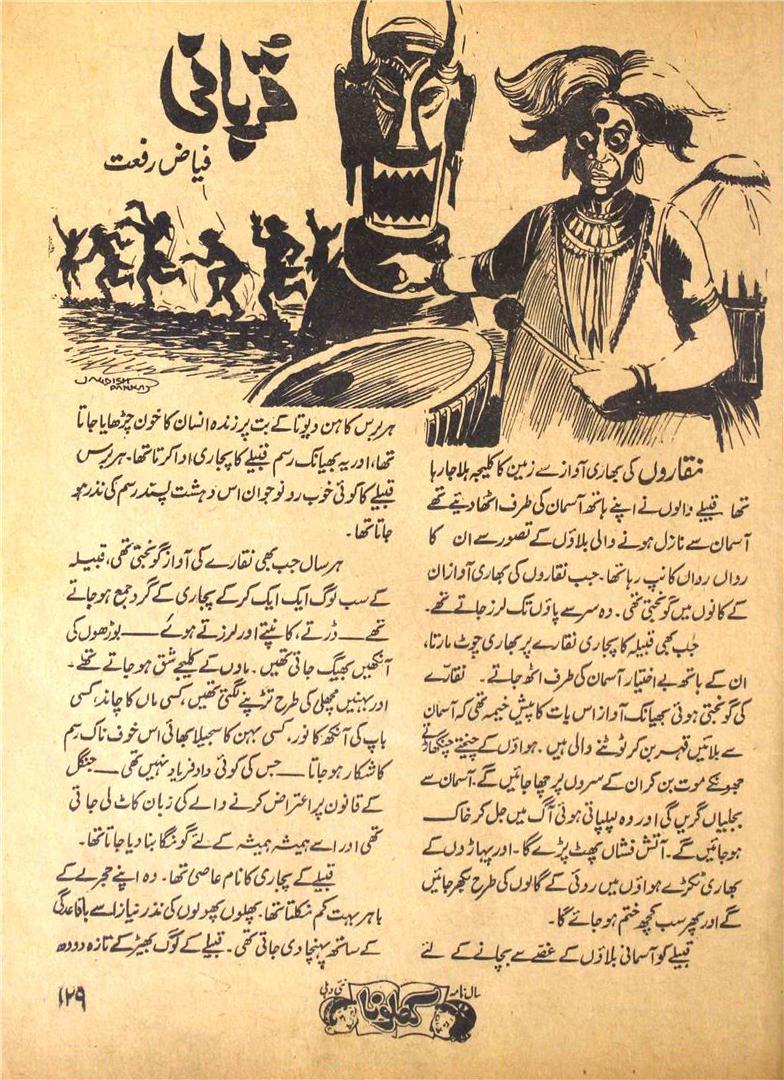 قربانی
فیاض رفعت
JAGDISH
PANKAJ
نقاروں کی بھاری آواز سے زمین کا کلیجہ ہلا جا رہا
تھا قبیلے والوں نے اپنے ہاتھ آسمان کی طرف اٹھا دیئے تھے
آسمان سے نازل ہونے والی بلاؤں کے تصور سے ان کا
رواں رواں کانپ رہا تھا۔ جب نقاروں کی بھاری آواز ان
کے کانوں میں گونجتی تھی۔ وہ سر سے پاؤں تک لرز جاتے تھے۔
جب بھی قبیلہ کا پجاری نقارے پر بھاری چوٹ مارتا،
ان کے ہاتھ بے اختیار آسمان کی طرف اٹھ جاتے۔ نقارے
کی گونجتی ہوئی بھیانک آواز اس بات کا پیش خیمہ تھی کہ آسمان
سے بلائیں قہر بن کر ٹوٹنے والی ہیں۔ ہواؤں کے چیختے چنگھاڑتے
جھونکے موت بن کر ان کے سروں پر چھا جائیں گے۔ آسمان سے
بجلیاں گریں گی اور وہ لپلپاتی ہوئی آگ میں جل کر خاک
ہو جائیں گے۔ آتش فشاں پھٹ پڑے گا۔ اور پہاڑوں کے
بھاری ٹکڑے ہواؤں میں روئی کے گالوں کی طرح بکھر جائیں
گے اور پھر سب کچھ ختم ہو جائے گا۔
قبیلے کو آسمانی بلاؤں کے غصے سے بچانے کے لئے
ہر برس کاہن دیوتا کے بت پر زندہ انسان کا خون چڑھایا جاتا
تھا، اور یہ بھیانک رسم قبیلے کا پجاری ادا کرتا تھا۔ ہر برس
قبیلے کا کوئی خوب رو نوجوان اس دہشت پسند رسم کی نذر ہو
جاتا تھا۔
ہر سال جب بھی نقارے کی آواز گونجتی تھی، قبیلہ
کے سب لوگ ایک ایک کر کے پجاری کے گرد جمع ہو جاتے
تھے ـــ ڈرتے، کانپتے اور لرزتے ہوئے ـــ بوڑھوں کی
آنکھیں بھیگ جاتی تھیں۔ ماؤں کے کلیجے شق ہو جاتے تھے۔
اور بہنیں مچھلی کی طرح تڑپنے لگتی تھیں، کسی ماں کا چاند، کسی
باپ کی آنکھ کا نور، کسی بہن کا سجیلا بھائی اس خوف ناک رسم
کا شکار ہو جاتا ـــ جس کی کوئی داد فریاد نہیں تھی ـــ جنگل
کے قانون پر اعتراض کرنے والے کی زبان کاٹ لی جاتی
تھی اور اسے ہمیشہ ہمیشہ کے لئے گونگا بنا دیا جاتا تھا۔
قبیلے کے پجاری کا نام عاصی تھا۔ وہ اپنے حجرے کے
باہر بہت کم نکلتا تھا۔ پھلوں پھولوں کی نذر نیاز اسے باقاعدگی
کے ساتھ پہنچا دی جاتی تھی۔ قبیلے کے لوگ بھیڑ کے تازہ دودھ
سالنامہ کھلونا نئی دہلی
۱۲۹